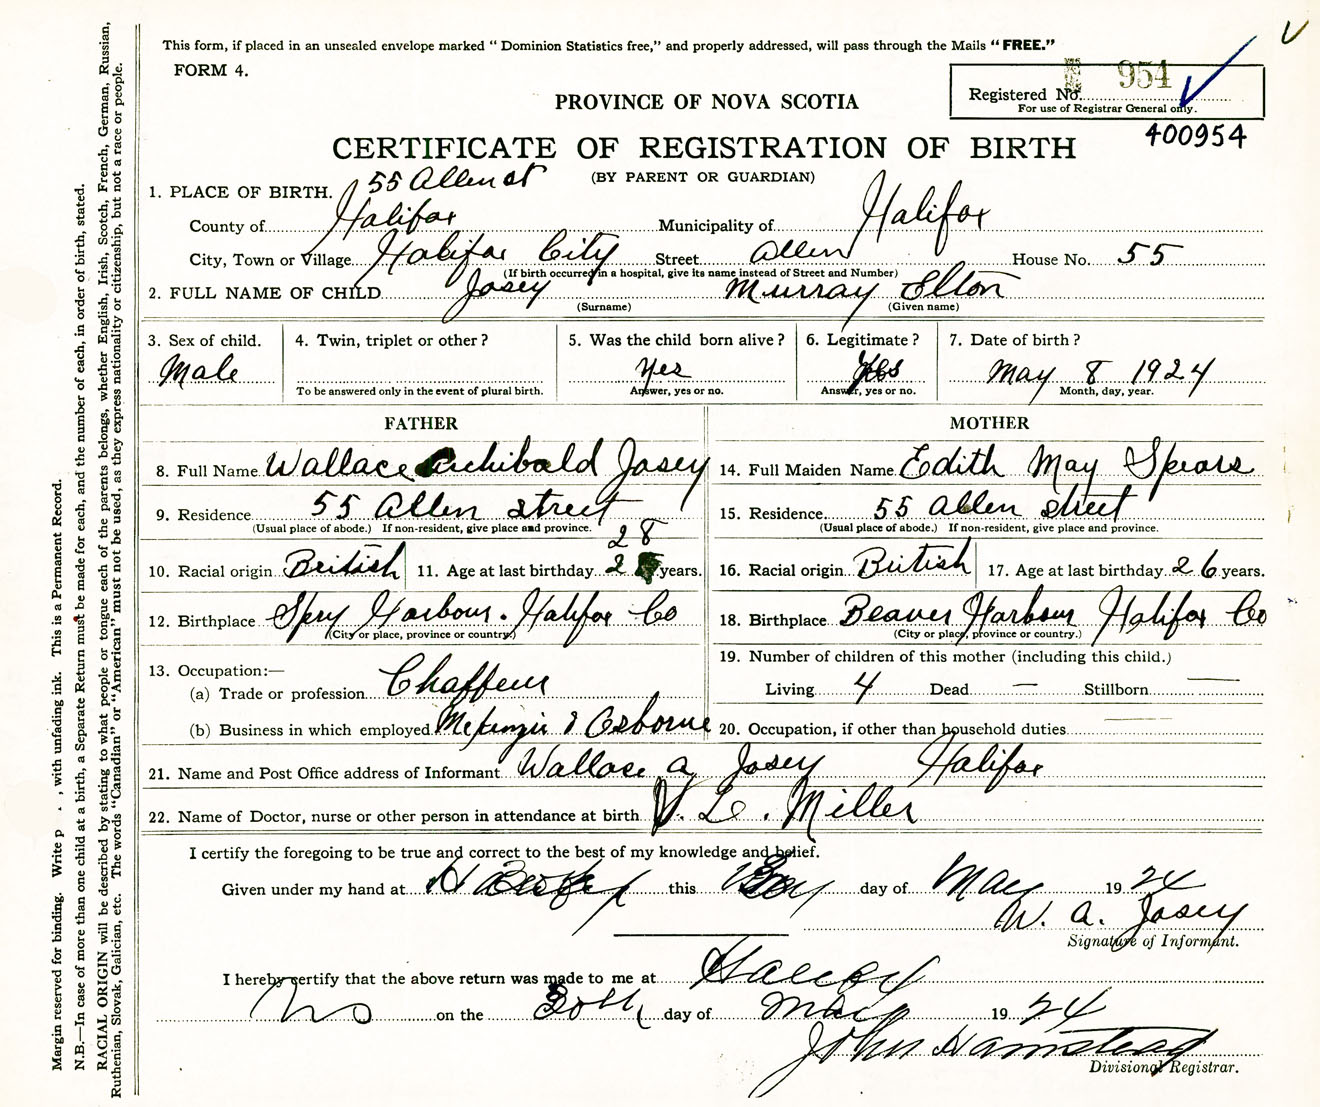 This form, if placed in an unsealed envelope marked " Dominion Statistics free," and properly addressed, will pass through the Mails " FREE."
FORM 4.
954
Registered No.
For use of Registrar General only.
400954
PROVINCE OF NOVA SCOTIA
CERTIFICATE OF REGISTRATION OF BIRTH
(BY PARENT OR GUARDIAN)
1. PLACE OF BIRTH. 55 Allen st
County of Halifax Municipality of Halifax
City, Town or Village Halifax City Street Allen House No. 55
(If birth occurred in a hospital, give its name instead of Street and Number)
2. FULL NAME OF CHILD Josey Murray Elton
(Surname) (Given name)
3. Sex of child. 4. Twin, triplet or other? 5. Was the child born alive? 6. Legitimate? 7. Date of birth?
Male Yes Yes May 8 1924
To be answered only in the event of plural birth. Answer, yes or no. Answer, yes or no. Month, day, year.
FATHER MOTHER
8. Full Name Wallace Archibald Josey 14. Full Maiden Name Edith May Spears
9. Residence 55 Allen street 15. Residence 55 Allen street
(Usual place of abode.) If non-resident, give place and province. (Usual place of abode.) If non-resident, give place and province.
28
10. Racial origin British 11. Age at last birthday 2 years. 16. Racial origin British 17. Age at last birthday 26 years.
12. Birthplace Spry Harbour. Halifax Co 18. Birthplace Beaver Harbour Halifax Co
(City or place, province or country.) (City or place, province or country.)
13. Occupation:— 19. Number of children of this mother (including this child.)
(a) Trade or profession Chaffeur Living 4 Dead — Stillborn —
(b) Business in which employed McKenzie & Osborne 20. Occupation, if other than household duties —
21. Name and Post Office address of Informant Wallace A Josey Halifax
22. Name of Doctor, nurse or other person in attendance at birth L. Miller
I certify the foregoing to be true and correct to the best of my knowledge and belief.
Given under my hand at this day of May 1924
W. A. Josey
Signature of Informant.
I hereby certify that the above return was made to me at Halifax
N S on the 30th day of May 1924
John Hamstead
Divisional Registrar.
Margin reserved for binding. Write p , with unfading ink. This is a Permanent Record.
N.B.—In case of more than one child at a birth, a Separate Return must be made for each, and the number of each, in order of birth, stated.
RACIAL ORIGIN will be described by stating to what people or tongue each of the parents belongs, whether English, Irish, Scotch, French, German, Russian,
Ruthenian, Slovak, Galician, etc. The words "Canadian" or "American" must not be used, as they express nationality or citizenship, but not a race or people.